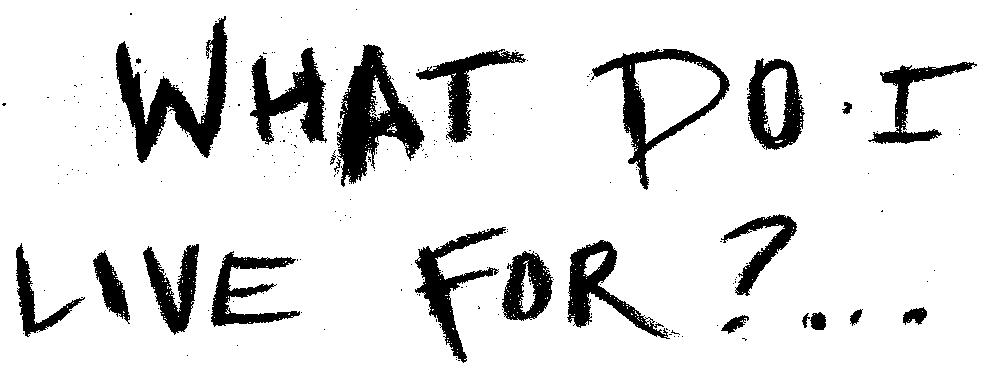 WHAT DO I
LIVE FOR?...